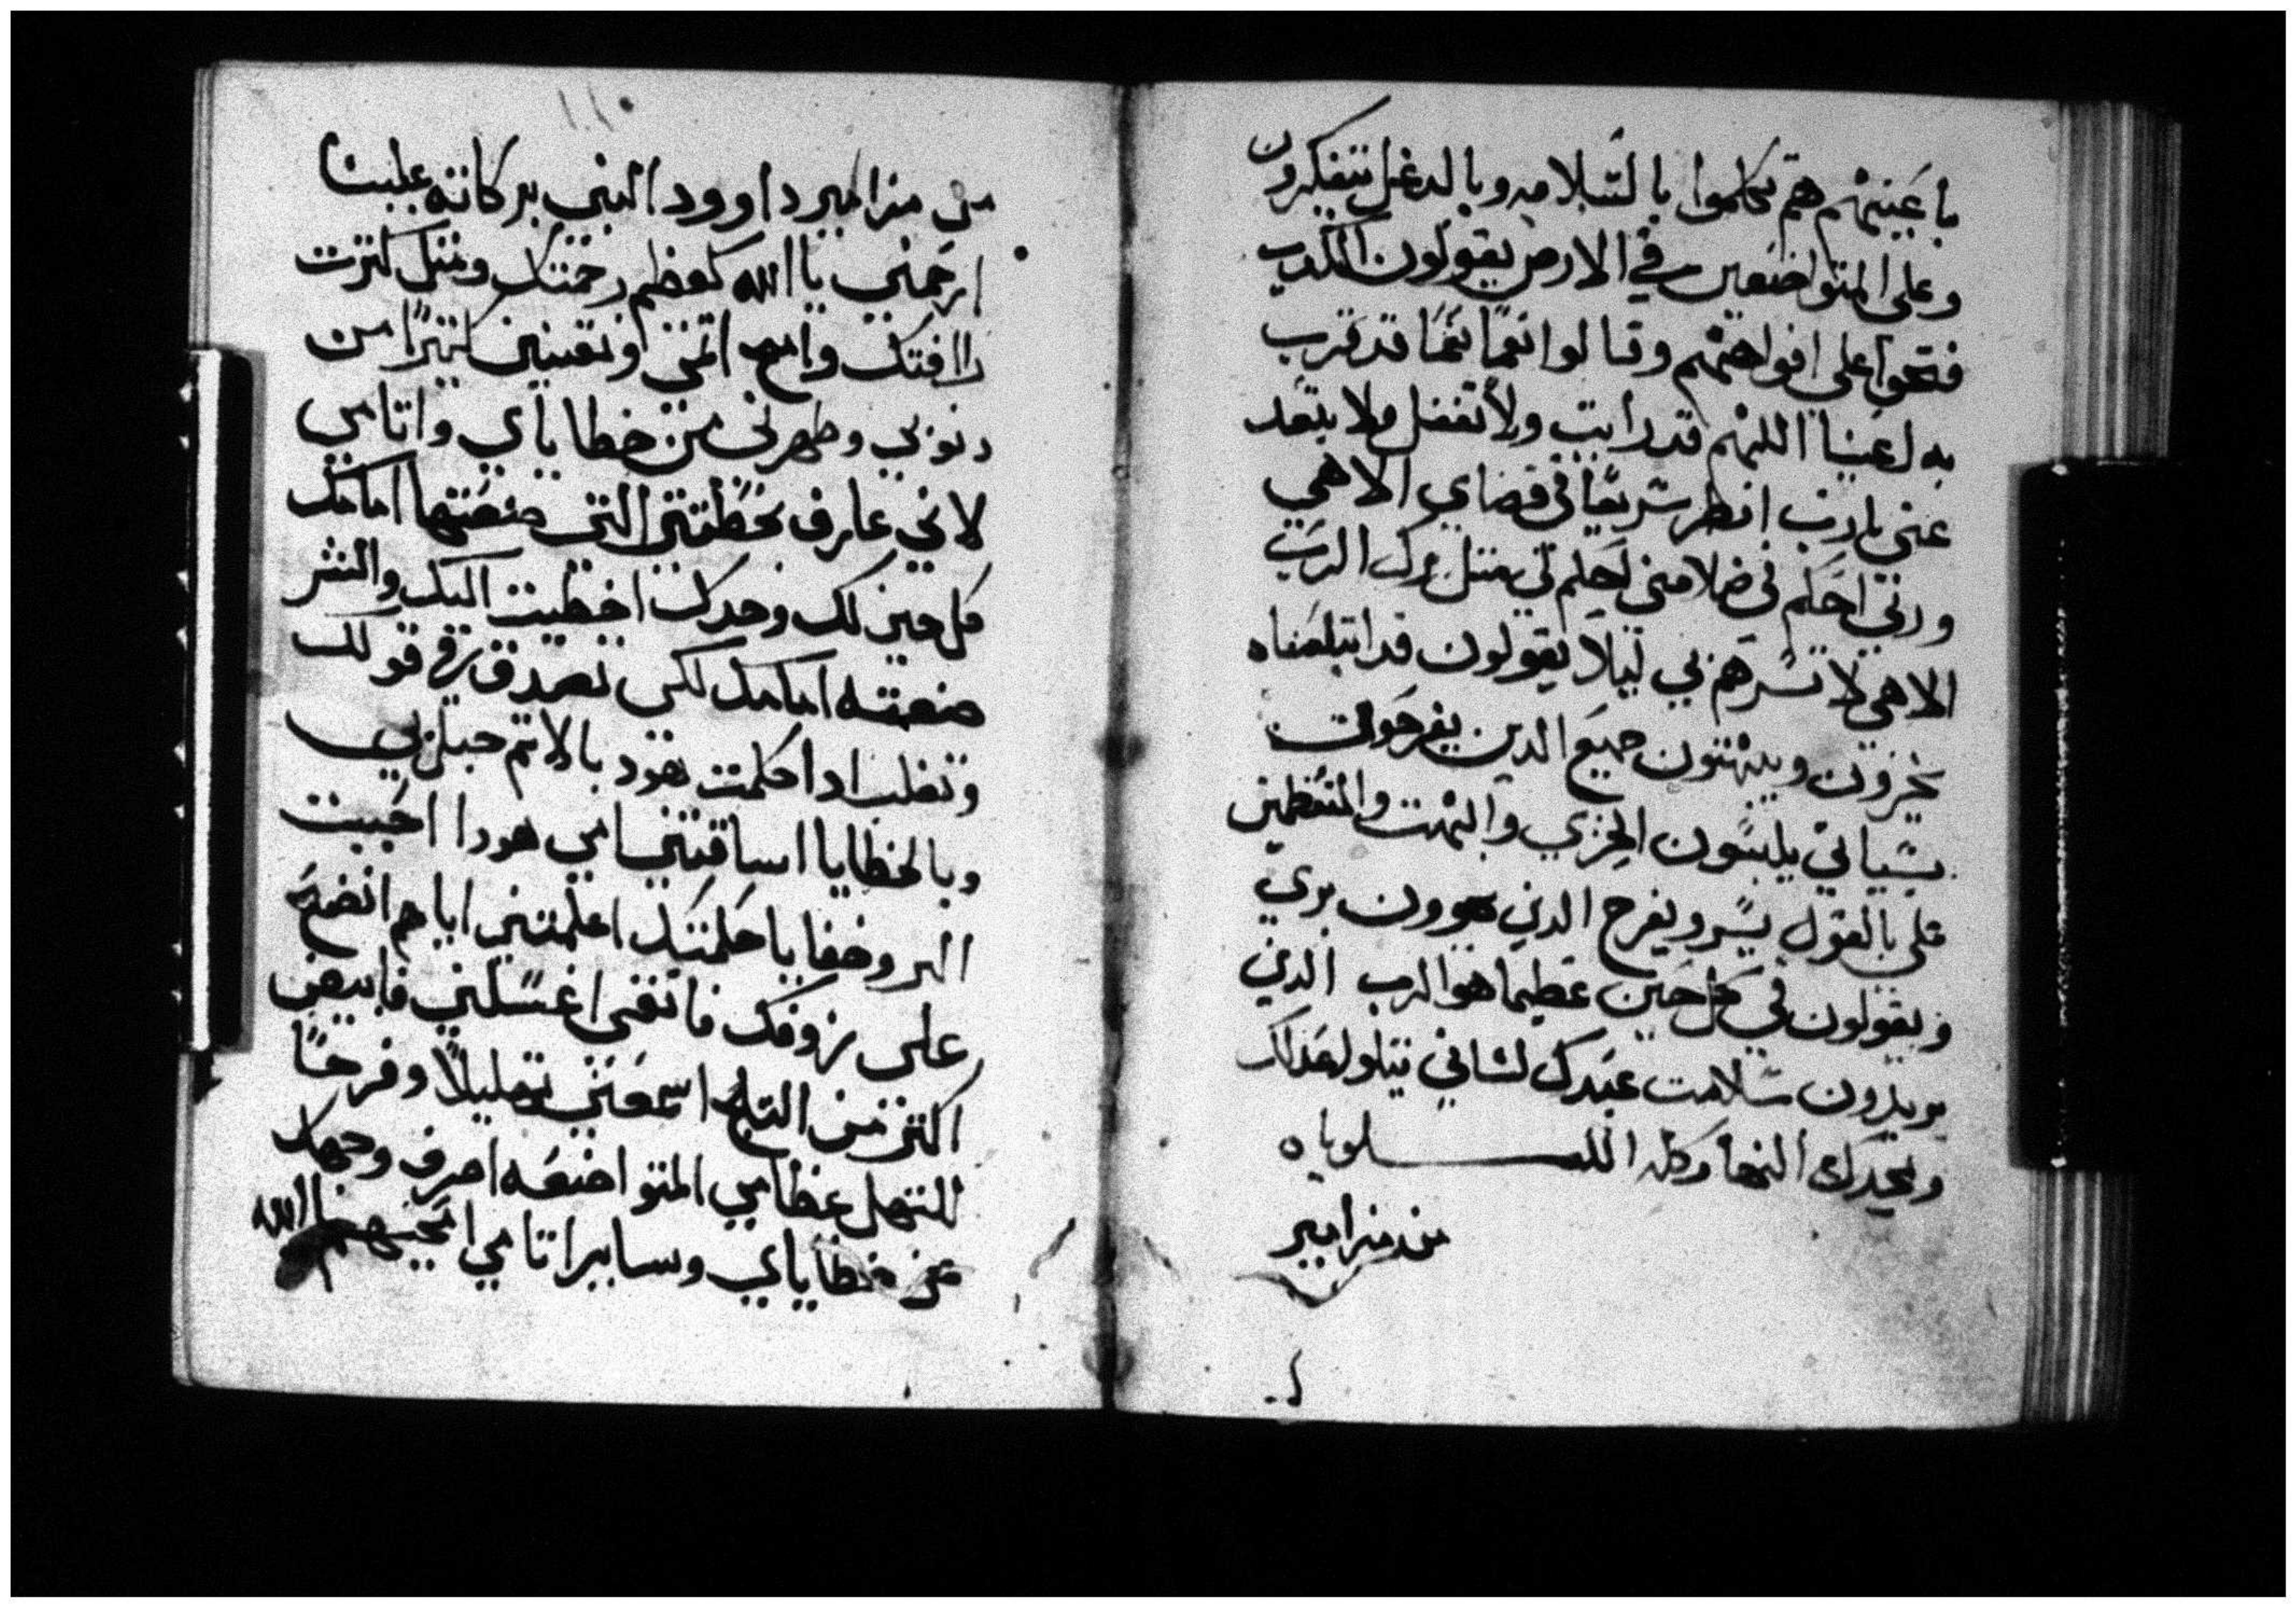 باعينهم هم تكلموا بالسلامه وبالدغل يتفكرون
وعلى المتواضعين في الارض يقولون الكدب
فتحوا على افواههم وقالوا نعما نعما قد قرب
به اعيننا اللهم قد رايت ولا تغفل ولا تبتعد
عني يا رب انظر سريعا في قضاي الاهي
وربي احكم في ضلامتي احكم لي مثل برك الرب
الاهي لا تسرهم بي ليلا يقولون قد ابتلعناه
يخزون ويبهتون جميع الدين يفرحوان
بسياتي يلبسون الخزي والبهت والمتعظمين
على بالقول يسر ويفرح الدين يهوون بري
ويقولون في كل حين عظيما هو الرب الدين
يريدون سلامت عبدك لساني يتلو لعدلك
وبمجدك النهار كله الليلوياه
من مزامير
من مزامير داوود النبي بركاته علينا
ارحمني يا الله كعظم رحمتك ومثل كثرت
راافتك وامح اثمي ونقيني كثيرا من
دنوبي وطهرني من خطاياي واتامي
لاني عارف بخطيتي التي صنعتها امامك
كل حين لك وحدك اخطيت اليك والشر
صنعته امامك لكي تصدق في قولك
وتغلب ادا حكمت هودا بالاتم حبل بي
وبالخطايا اساقتني امي هودا احببت
البر وخفايا حكمتك اعلمتني اياهم انضح
على بزوفك فاتقى اغسلني فابيض
اكثر من الثلج اسمعني تهليلا وفرحا
لتتهلل عظامي المتواضعه اصرف وجهك
من خطاياي وساير اتامي امحيهم يا الله